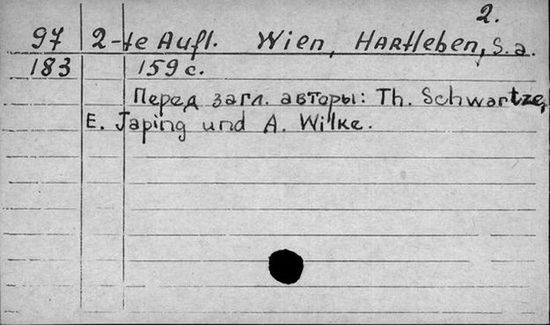 2.
97 2-te Aufl. Wien, Hartleben, s. a.
183 159 с.
Перед загл. авторы: Th. Schwartze,
E. Japing und A. Wilke.